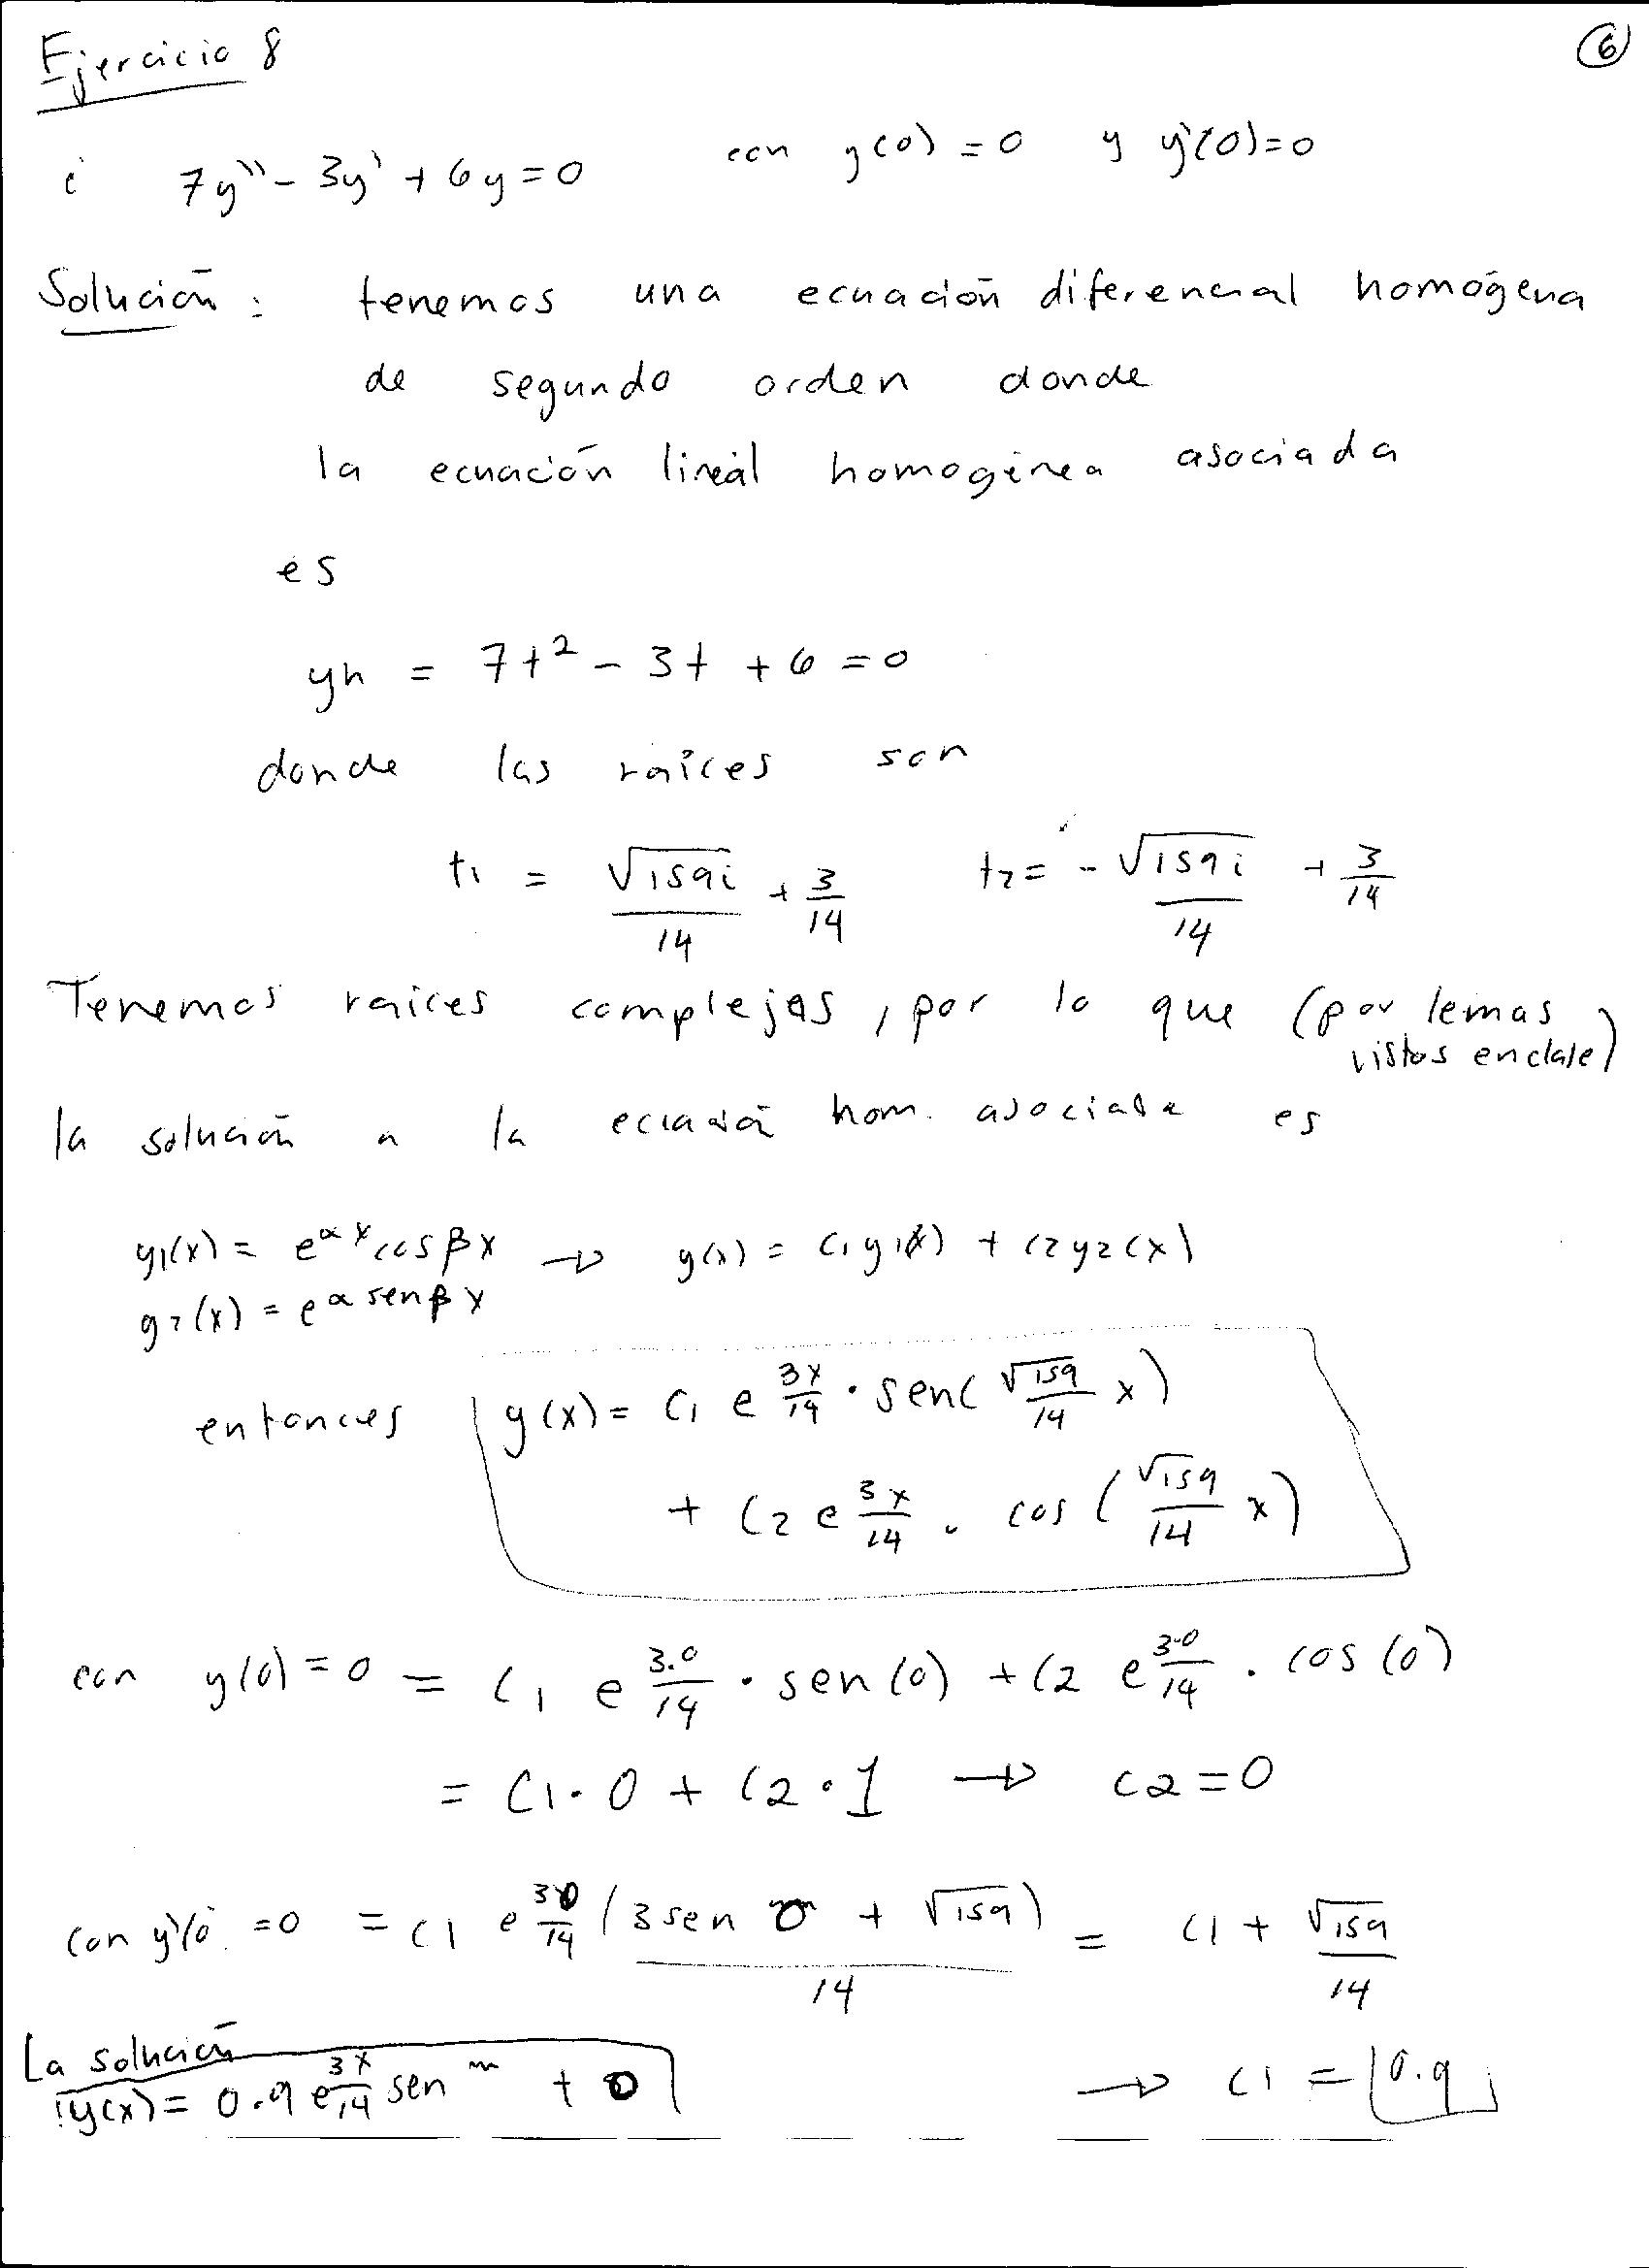 Ejercicio 8 ⑥
i 7y'' - 3y' + 6y = 0 con y(0) = 0 y y'(0)=0
Solución: tenemos una ecuación diferencial homógena
de segundo orden donde
la ecuación lineál homogénea asociada
es
yh = 7t² - 3t + 6 = 0
donde las raíces son
t1 = √159i/14 + 3/14 t2 = -√159i/14 + 3/14
Tenemos raices complejas, por lo que (por lemas
vistos en clase)
la solución a la hom. asociada es
y1(x) = e^αx cos βx → y(x) = c1 y1(x) + c2 y2(x)
y2(x) = e^α sen βx
entonces y(x) = C1 e^3x/14 · sen( √159/14 x)
+ C2 e^3x/14 · cos ( √159/14 x)
con y(0) = 0 = C1 e^3·0/14 · sen(0) + C2 e^3·0/14 · cos(0)
= C1 · 0 + C2 · 1 → C2 = 0
con y'(0 = 0 = C1 e^30/14 (3 sen 0 + √159)/14 = C1 + √159/14
La solución → C1 = 0.9
y(x) = 0.9 e^3x/14 sen + 0